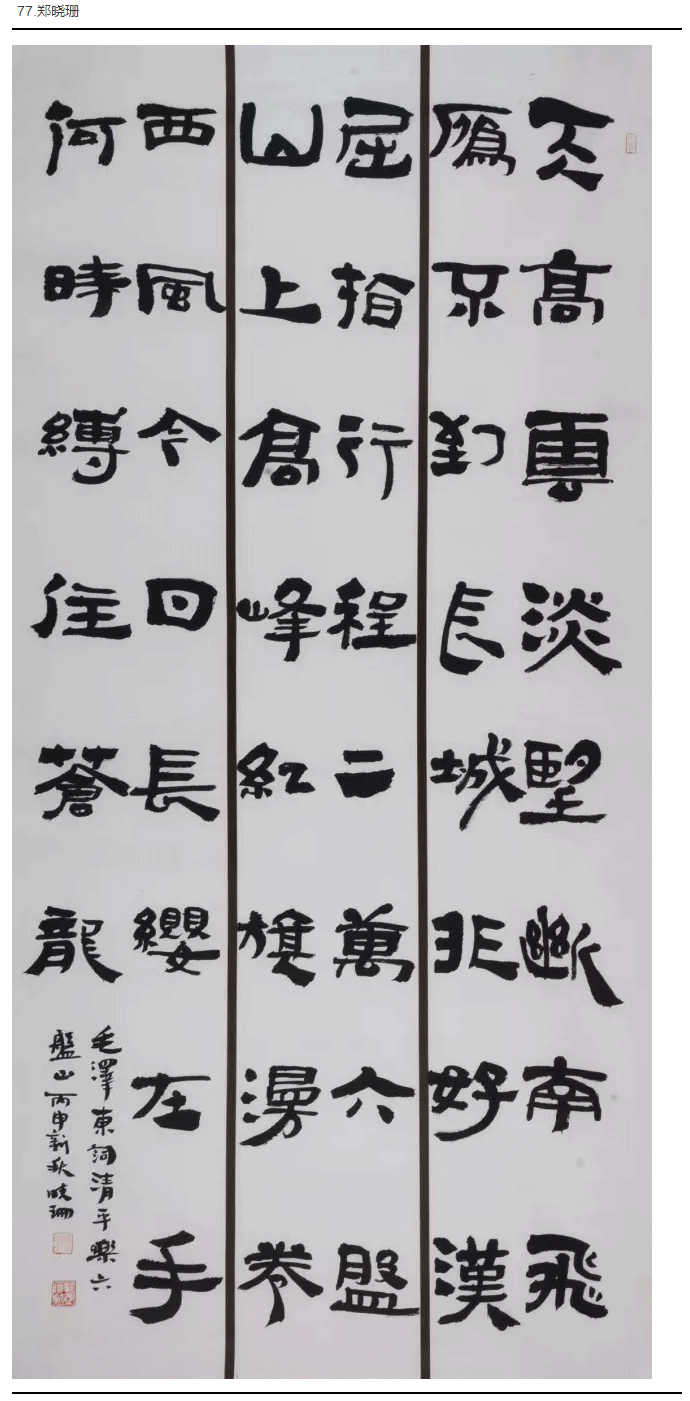 77.郑晓珊
天高雲淡朢斷南飛
鴈不到長城非好漢
屈指行程二萬六盤
山上高峰紅旗漫卷
西風今日長纓在手
何時縛住蒼龍
毛澤東詞清平樂六
盤山丙申新秋曉珊